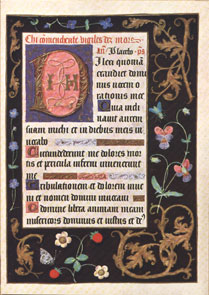 Placebo . ps
Dilexi quoniã
exaudiet domi
nus vocem o
rationis mee
Quia incli
nauit aurem
suam michi et in diebus meis in
uocabo
Circumdederunt me dolores mor
tis et pericula inferni inuenerunt
me
Tribulationem et dolorem inue
ni et nomen domini inuocaui
O domine libera animam meam
misericors dominus et iustus et de